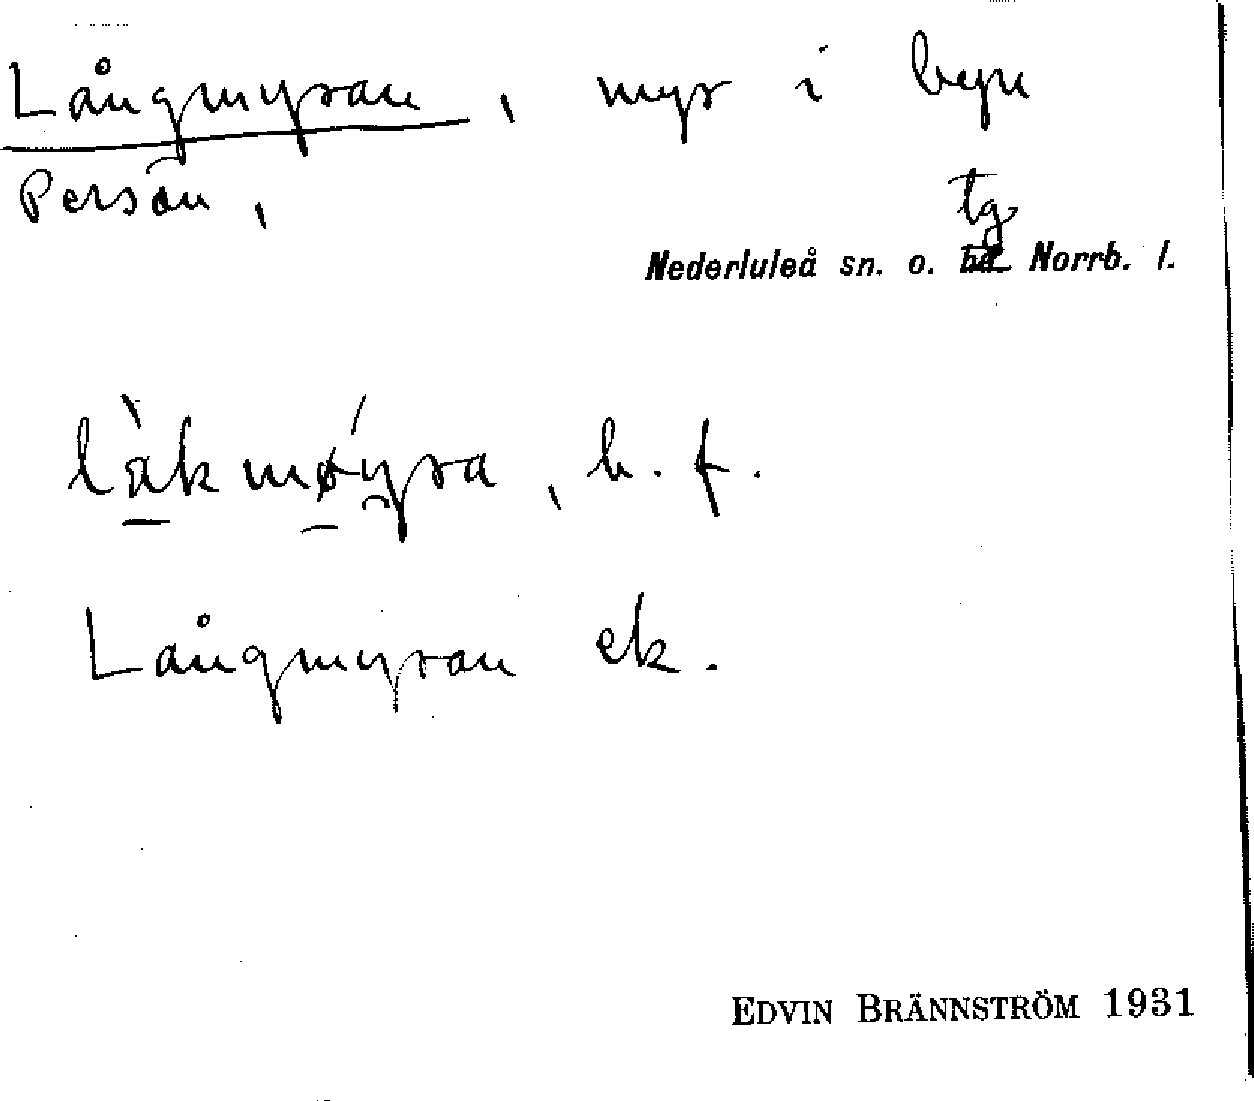 Långmyran, myr i byn
Persön,
tg
Nederluleå sn. o. hd Norrb. l.
làkmøýra, b. f.
Långmyran ek.
EDVIN BRÄNNSTRÖM 1931